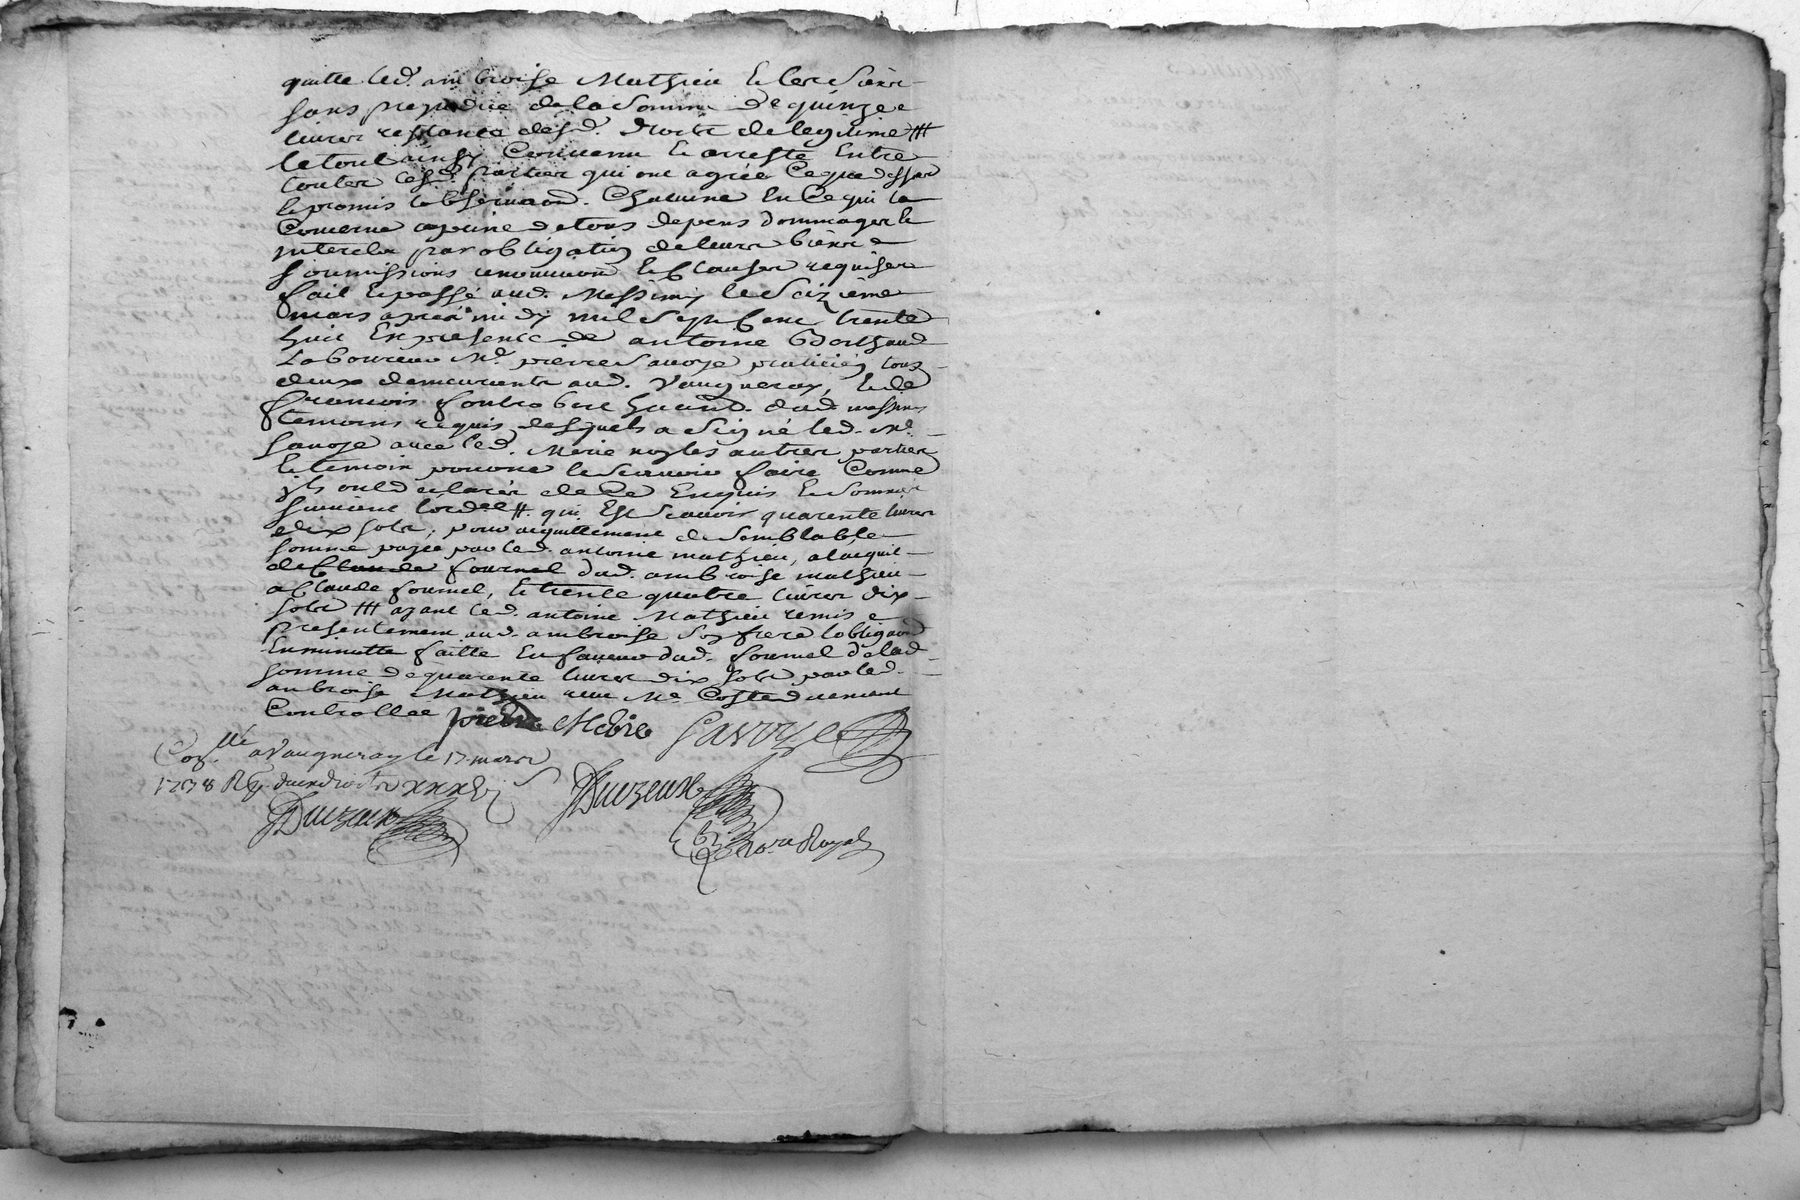 quitte led. ambroise Mathieu & les siens
sans prejudice de la somme de quinze
livres restante desd. droits de legitime ///
le tout ainsy convenu & arresté entre
toutes lesd. parties qui ont agréé ce que dessus
& promis l'observaon. chacune en ce qui la
concerne a peine de tous depens dommages &
interets par obligation de leurs biens
soumissions renonciaons & clauses requises
fait & passé aud. Messimy le seizieme
mars apres midy mil sept cent trente
huit en presence de antoine
laboureur & Me. pierre Savoye praticien tous
deux demeurants aud. Vaugneray, & de
francois dud. messimy
temoins requis desquels a signé led. Me.
Savoye avec led. Merie non les autres parties
& temoin pour ne le scavoir faire comme
ils ont declarés de ce enquis & sommés
suivant lordce ///. qui est scavoir quarente livres
dix sols, pour acquittement de semblable
somme payée par led. antoine mathieu, a lacquit
de Claude fournel dud. ambroise mathieu
a Claude fournel, & trente quatre livres dix
sols /// ayant led. antoine Mathieu remis
presentement aud. ambroise son frere lobligaon
en minutte faitte en faveur dud. fournel de lad.
somme de quarente livres dix sols par led.
ambroise Mathieu Me Coste duement
Controllée pierre Merie Savoye
Con.llé a Vaugneray le 17 mars
1738
JDuvzeux JDuvzeux
no.re Royal